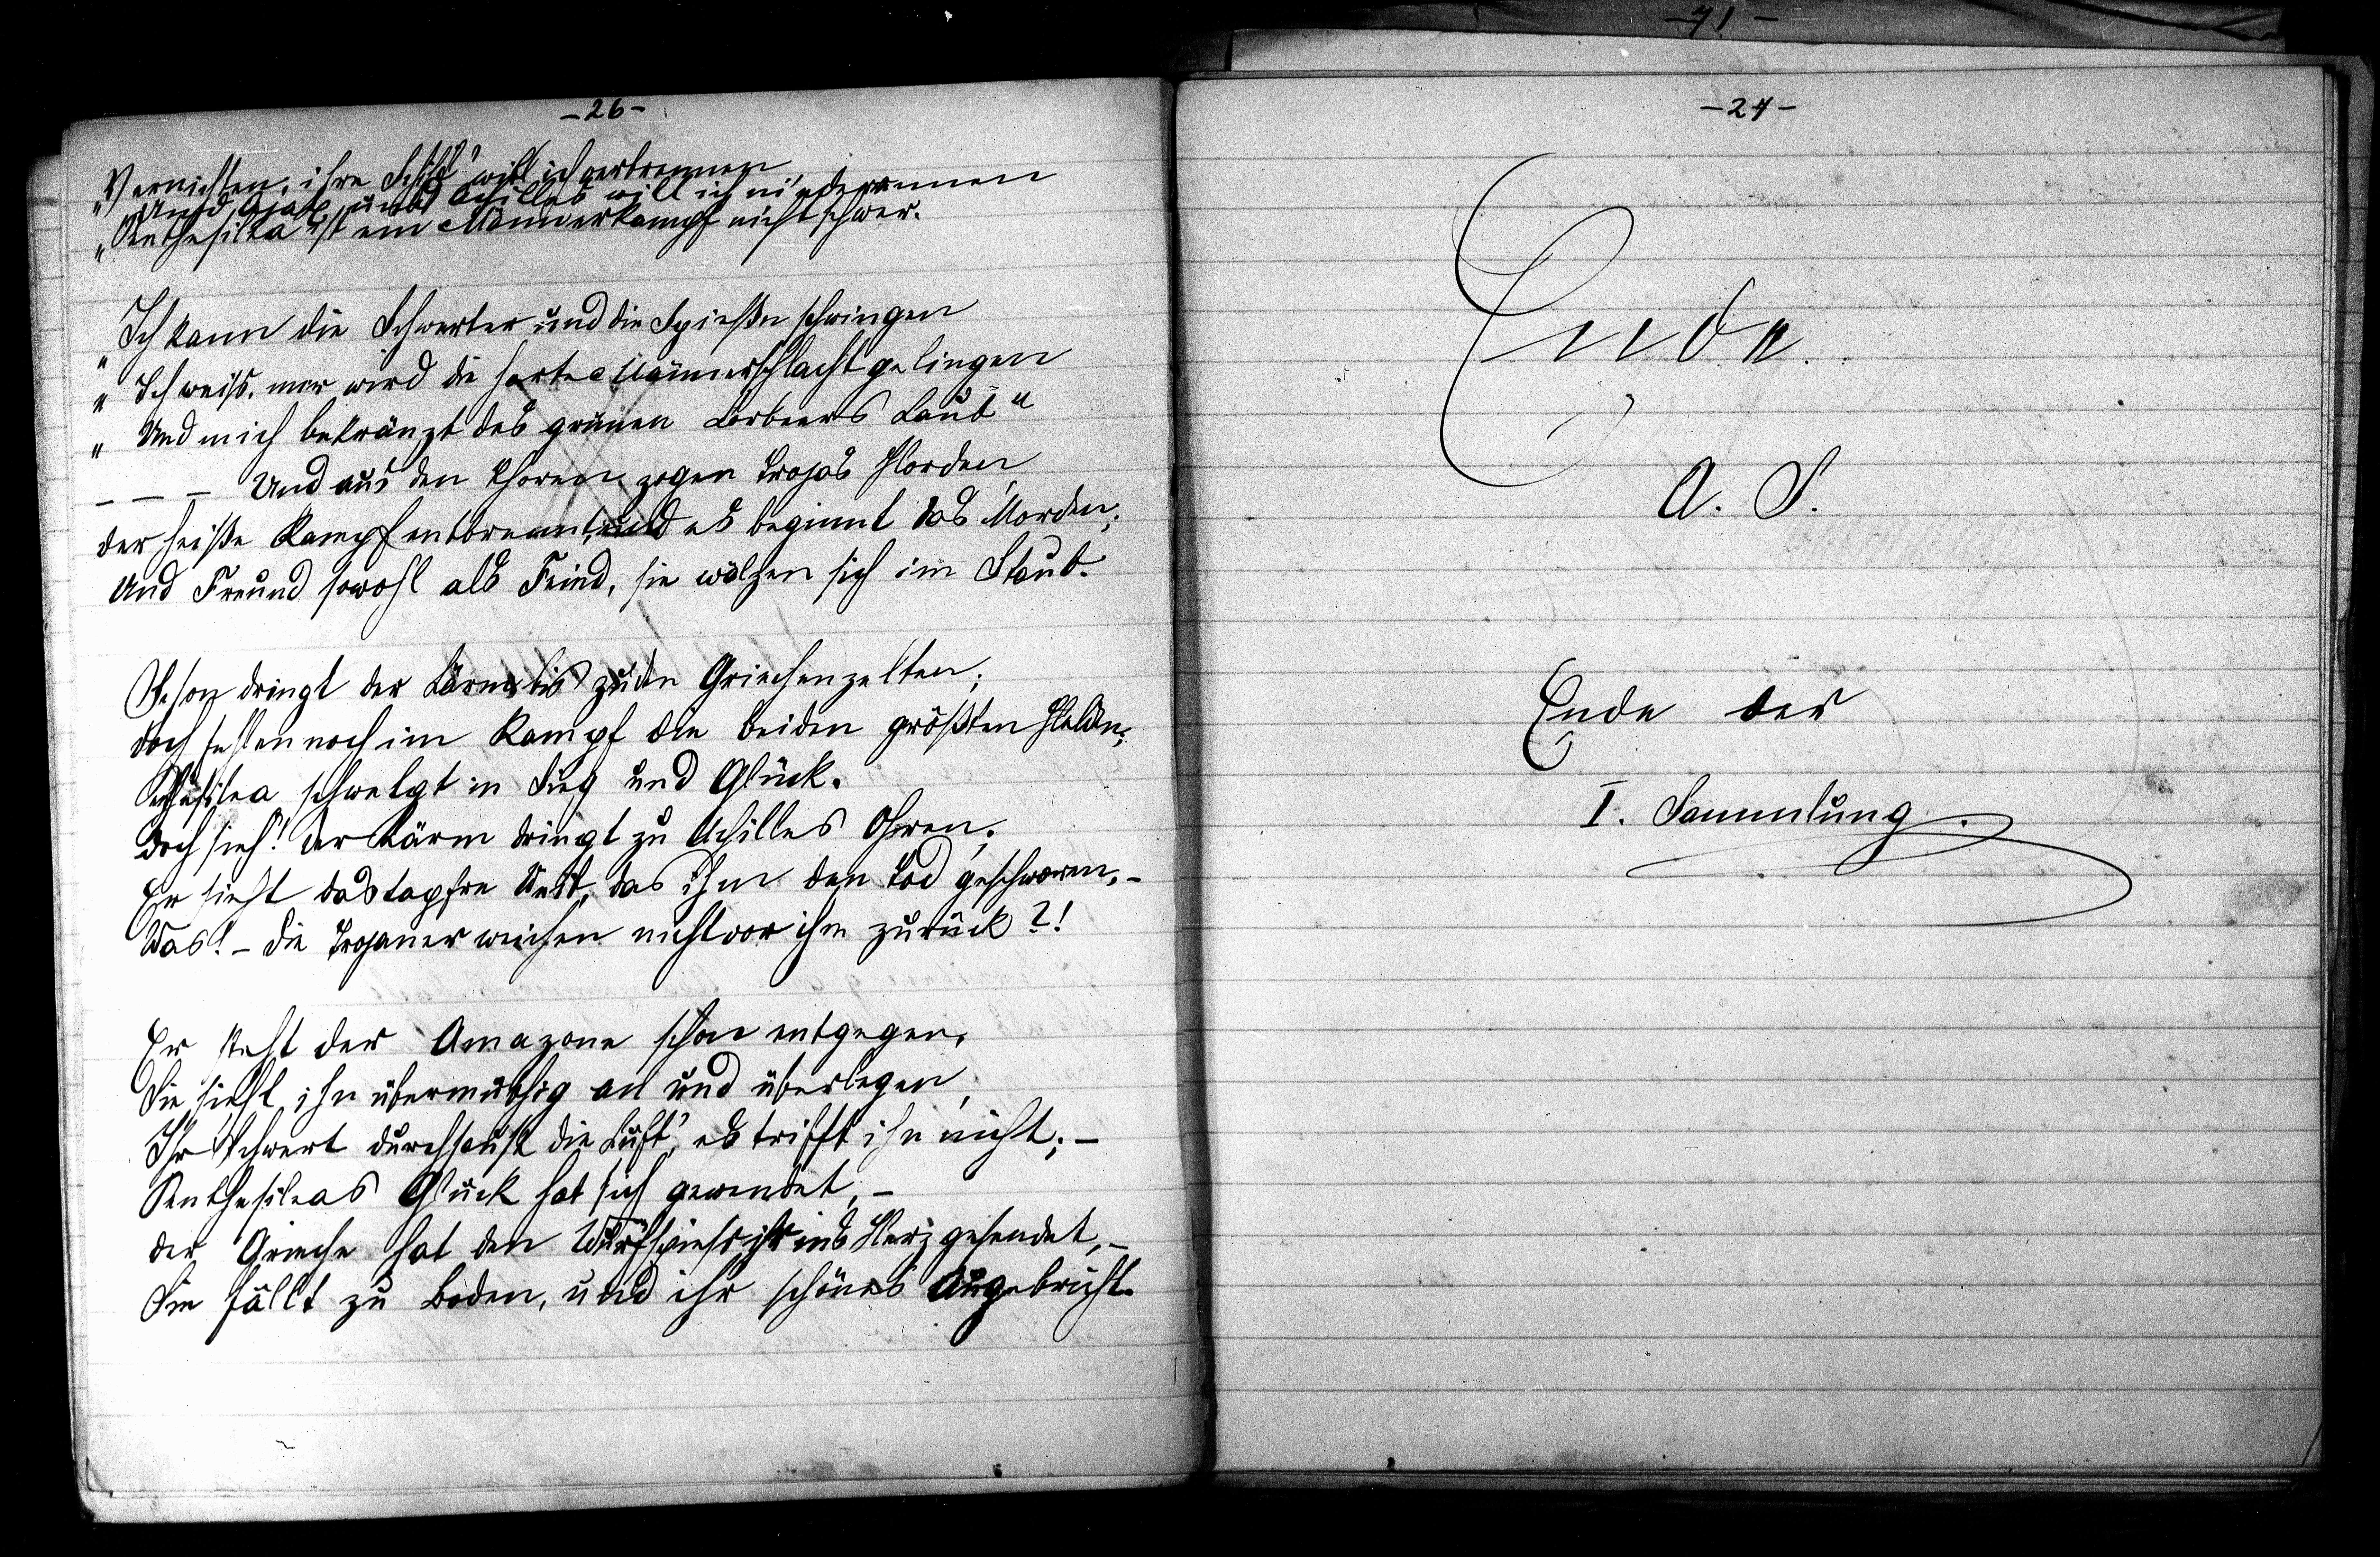 -26-
„Vernichten, ihre Schiff' will ich verbrennen
„Und Ajax und Achilles will ich niederrennen
„Penthesilea ist ein Männerkampf nicht schwer.
„Ich kann die Schwerter und die Spieße schwingen
„Ich weiß, mir wird die harte Männerschlacht gelingen
„Und mich bekränzt des grünen Lorbeers Laub"
– – – Und aus den Thoren zogen Trojas Horden,
der heiße Kampf entbrennt, und es beginnt das Morden;
Und Freund sowohl als Feind, sie wälzen sich im Staub.
Schon dringt der Lärm bis zu den Griechenzelten;
doch fehlen noch im Kampf die beiden größten Helden;
Penthesilea schwelgt in Sieg und Glück.
Doch sieh! der Lärm dringt zu Achilles Ohren;
Er sieht das tapfre Weib, das ihm den Tod geschworen, –
Was! – die Trojaner weichen nicht vor ihm zurück?!
Er steht der Amazone schon entgegen,
Sie sieht ihn übermüthig an und überlegen,
Ihr Schwert durchsaust die Luft, es trifft ihn nicht; –
Penthesileas Glück hat sich gewendet, –
der Grieche hat den Wurfspieß ihr ins Herz gesendet, –
Sie fällt zu Boden, und ihr schönes Auge bricht.
-71-
-27-
Ende.
A. S.
Ende der
I. Sammlung.